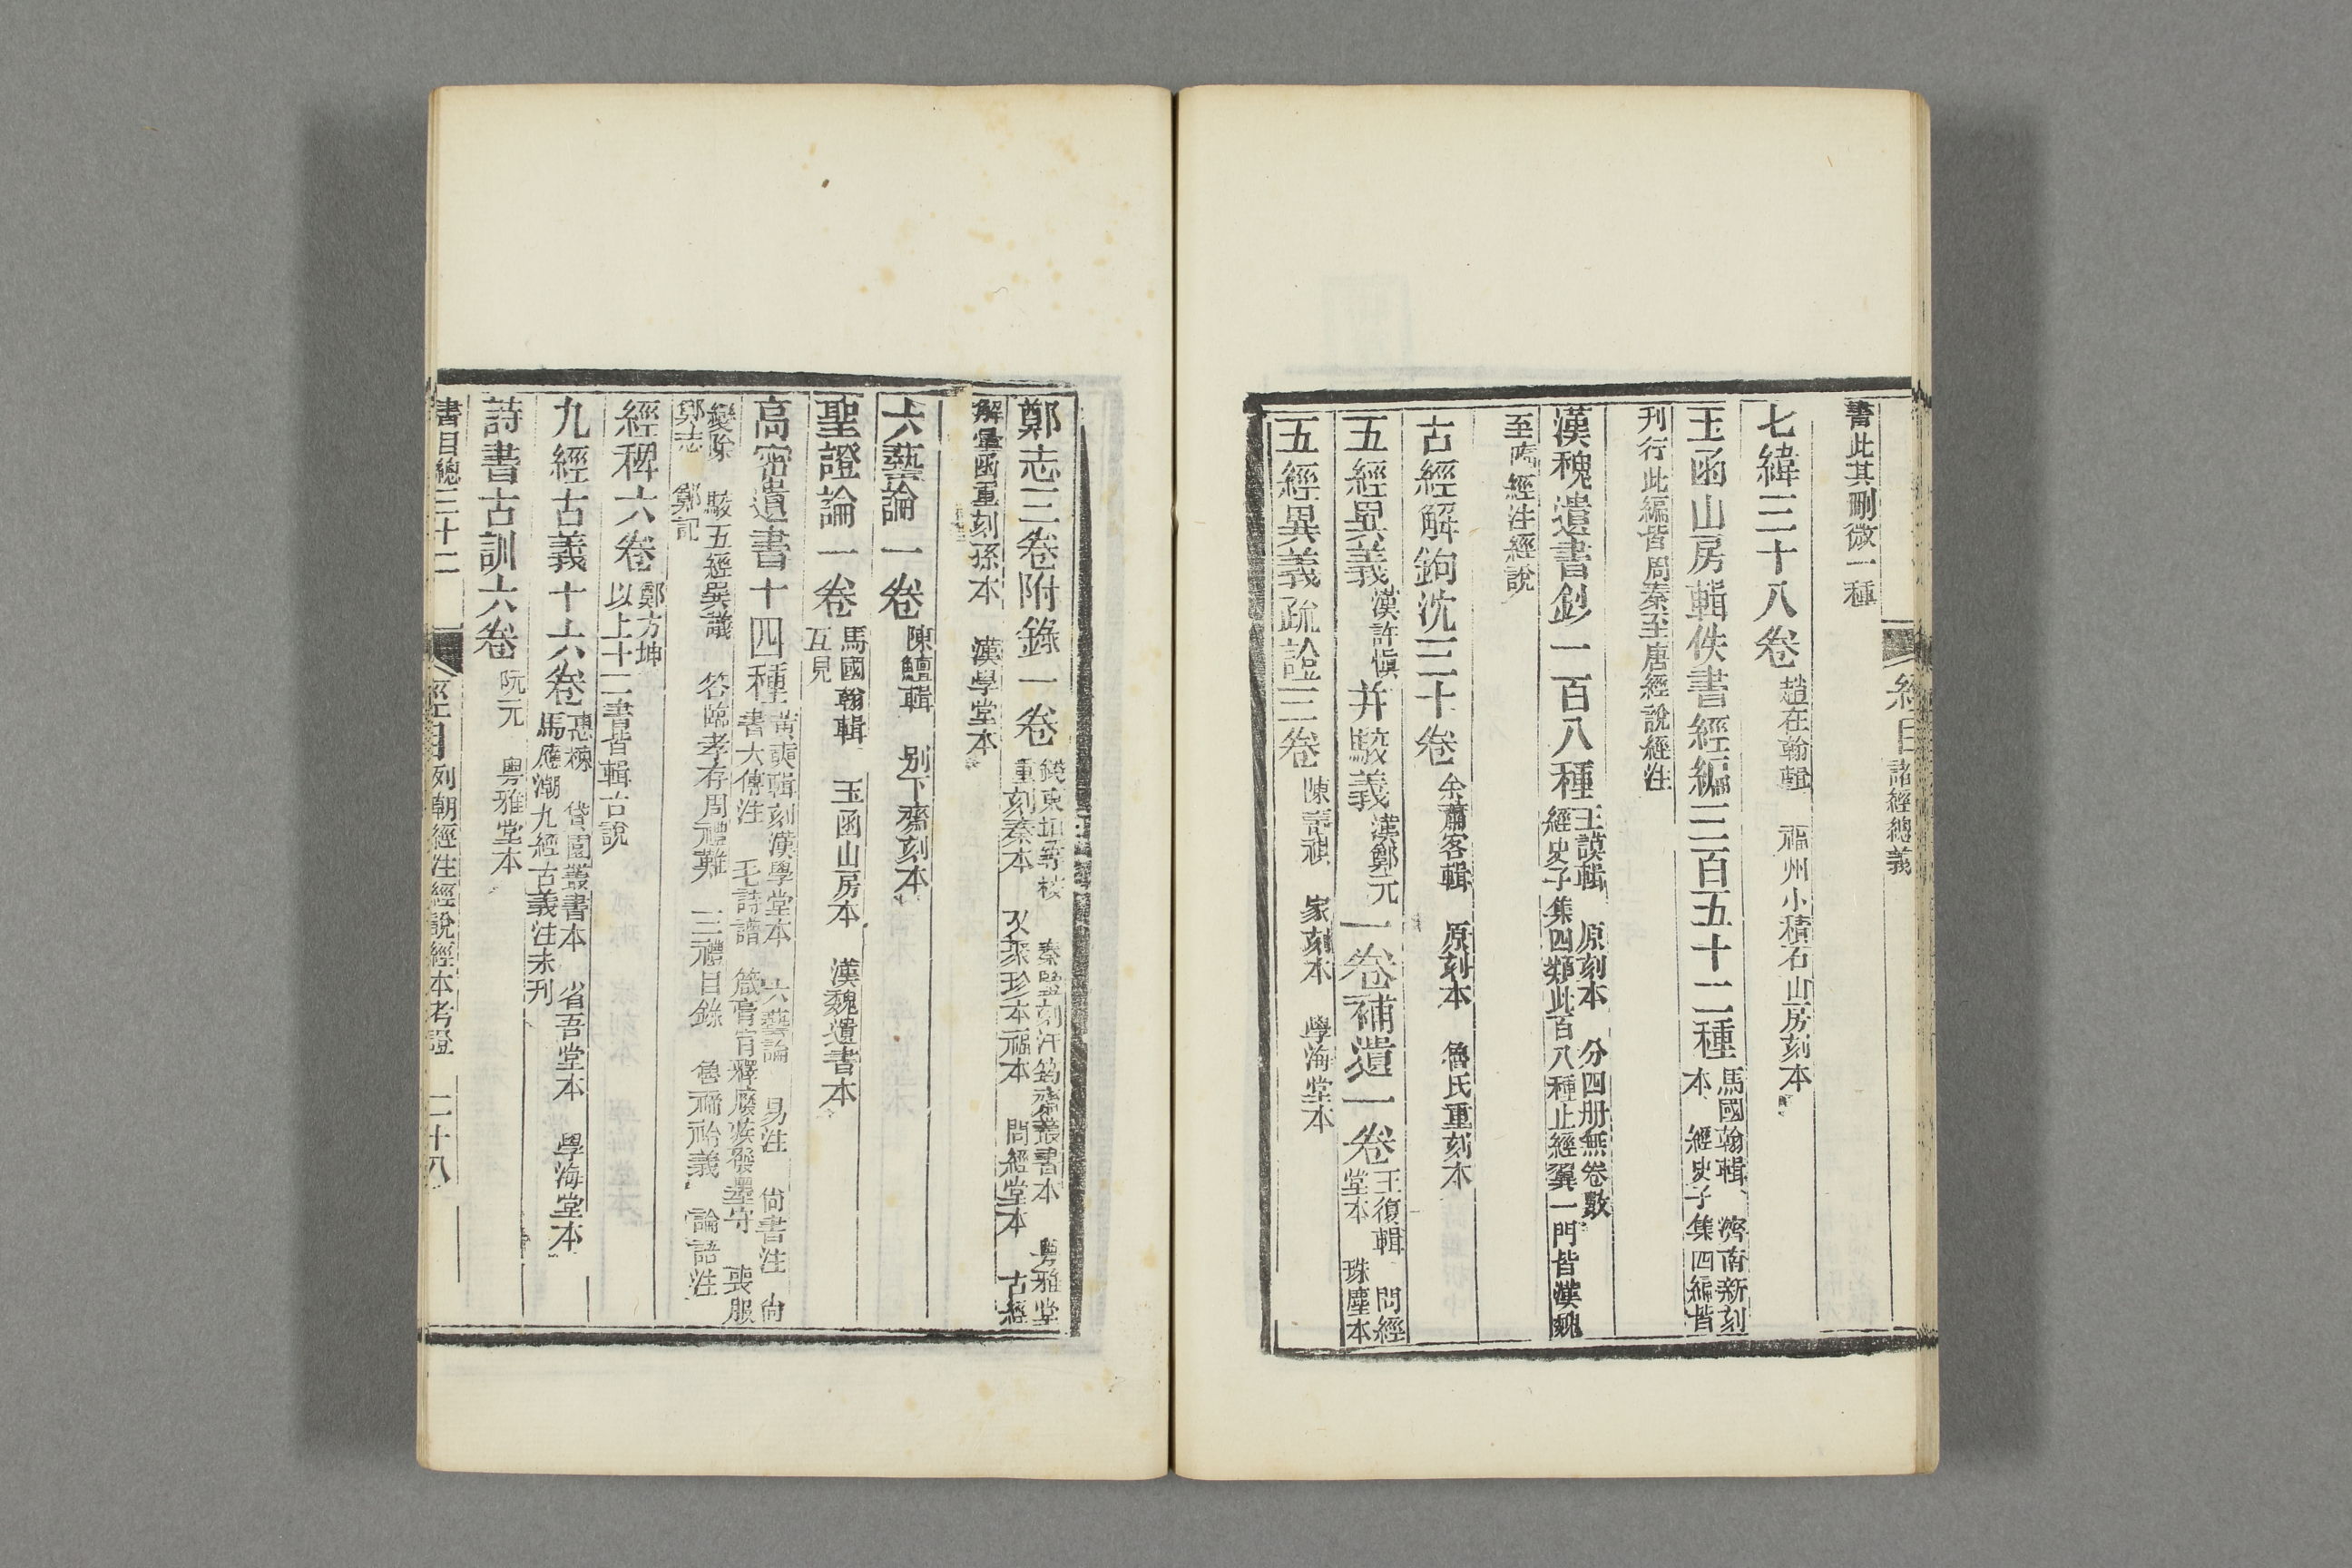 經目 諸經總義
書此其刪微一種
七緯三十八卷 趙在翰輯 福州小積石山房刻本
玉函山房輯佚書經編三百五十二種 馬國翰輯 濟南新刻
本 經史子集四編皆
刊行此編皆周秦至唐經說經注
漢魏遺書鈔一百八種 王謨輯 原刻本 分四册無卷數
經史子集四類此百八種止經翼一門皆漢魏
至隋經注經說
古經解鉤沈三十卷 余蕭客輯 原刻本 魯氏重刻本
五經異義 漢許愼 并駁義 漢鄭元 一卷補遺一卷 王復輯 問經
堂本 珠塵本
五經異義疏證三卷 陳壽祺 家刻本 學海堂本
鄭志三卷附錄一卷 錢東垣等校 秦鑒刻汗筠齋叢書本 粤雅堂
重刻秦本 又聚珍本福本 問經堂本 古經
解彙函重刻孫本 漢學堂本
六藝論一卷 陳鱣輯 别下齋刻本
聖證論一卷 馬國翰輯 玉函山房本 漢魏遺書本
互見
高密遺書十四種 黄奭輯刻漢學堂本 六藝論 易注 尙書注 尙
書大傳注 毛詩譜 箴膏肓釋廢疾發墨守 喪服
變除 駁五經異議 答臨孝存周禮難 三禮目錄 魯禘祫義 論語注
鄭志 鄭記
經稗六卷 鄭方坤
以上十二書皆輯古說
九經古義十六卷 惠棟 貸園叢書本 省吾堂本 學海堂本
馬應潮九經古義注未刊
詩書古訓六卷 阮元 粤雅堂本
書目總三十二 經目 列朝經注經說經本考證 二十八